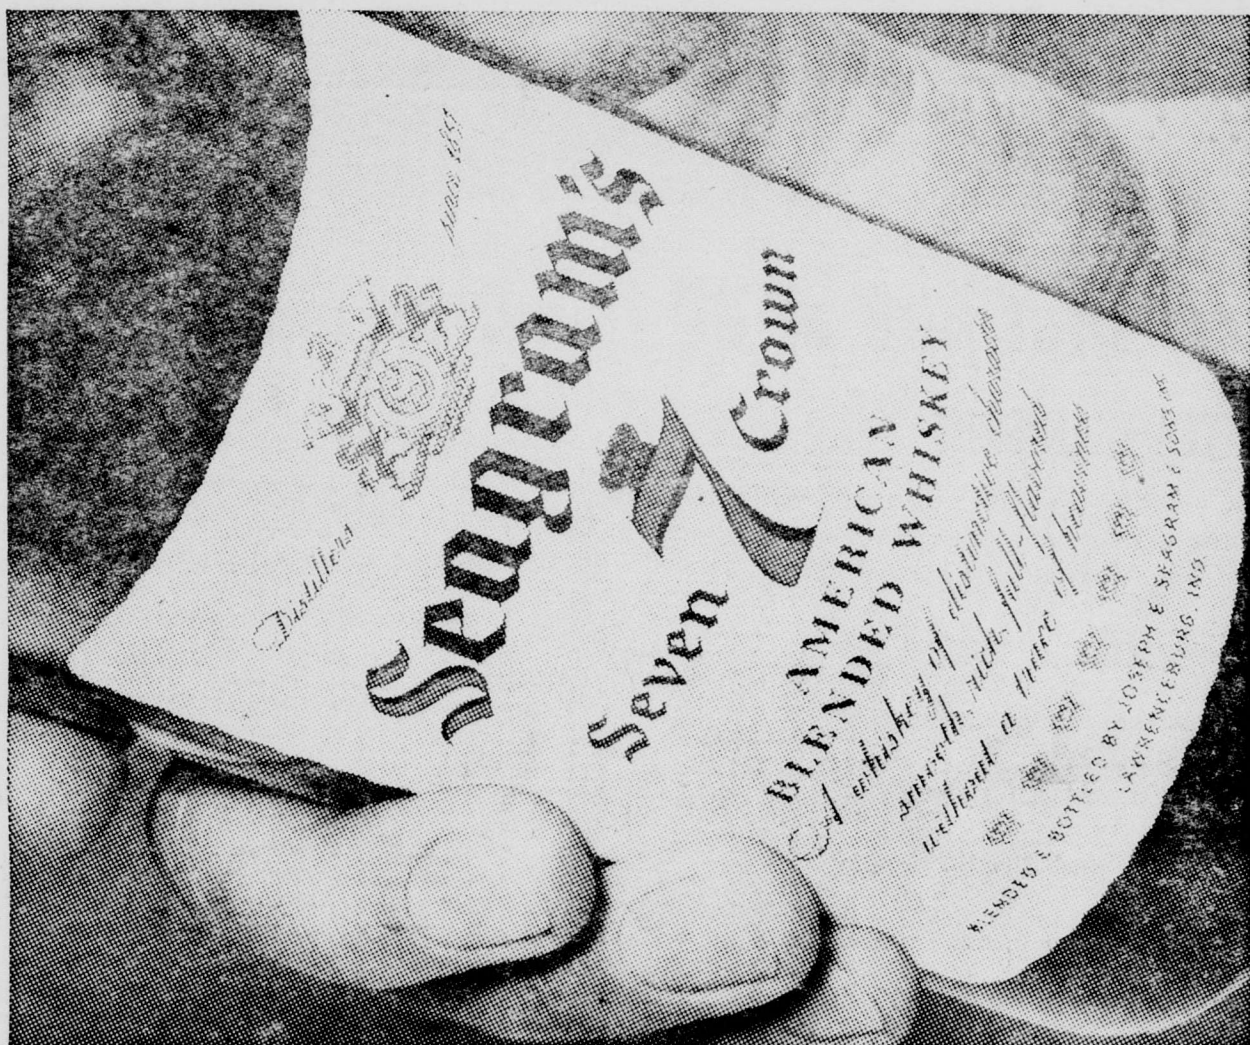 Distillers since 1857
Seagram's
Seven 7 Crown
AMERICAN
BLENDED WHISKEY
A whiskey of distinctive character
smooth, rich, full-flavored
without a trace of heaviness
BLENDED & BOTTLED BY JOSEPH E SEAGRAM & SONS INC
LAWRENCEBURG, IND